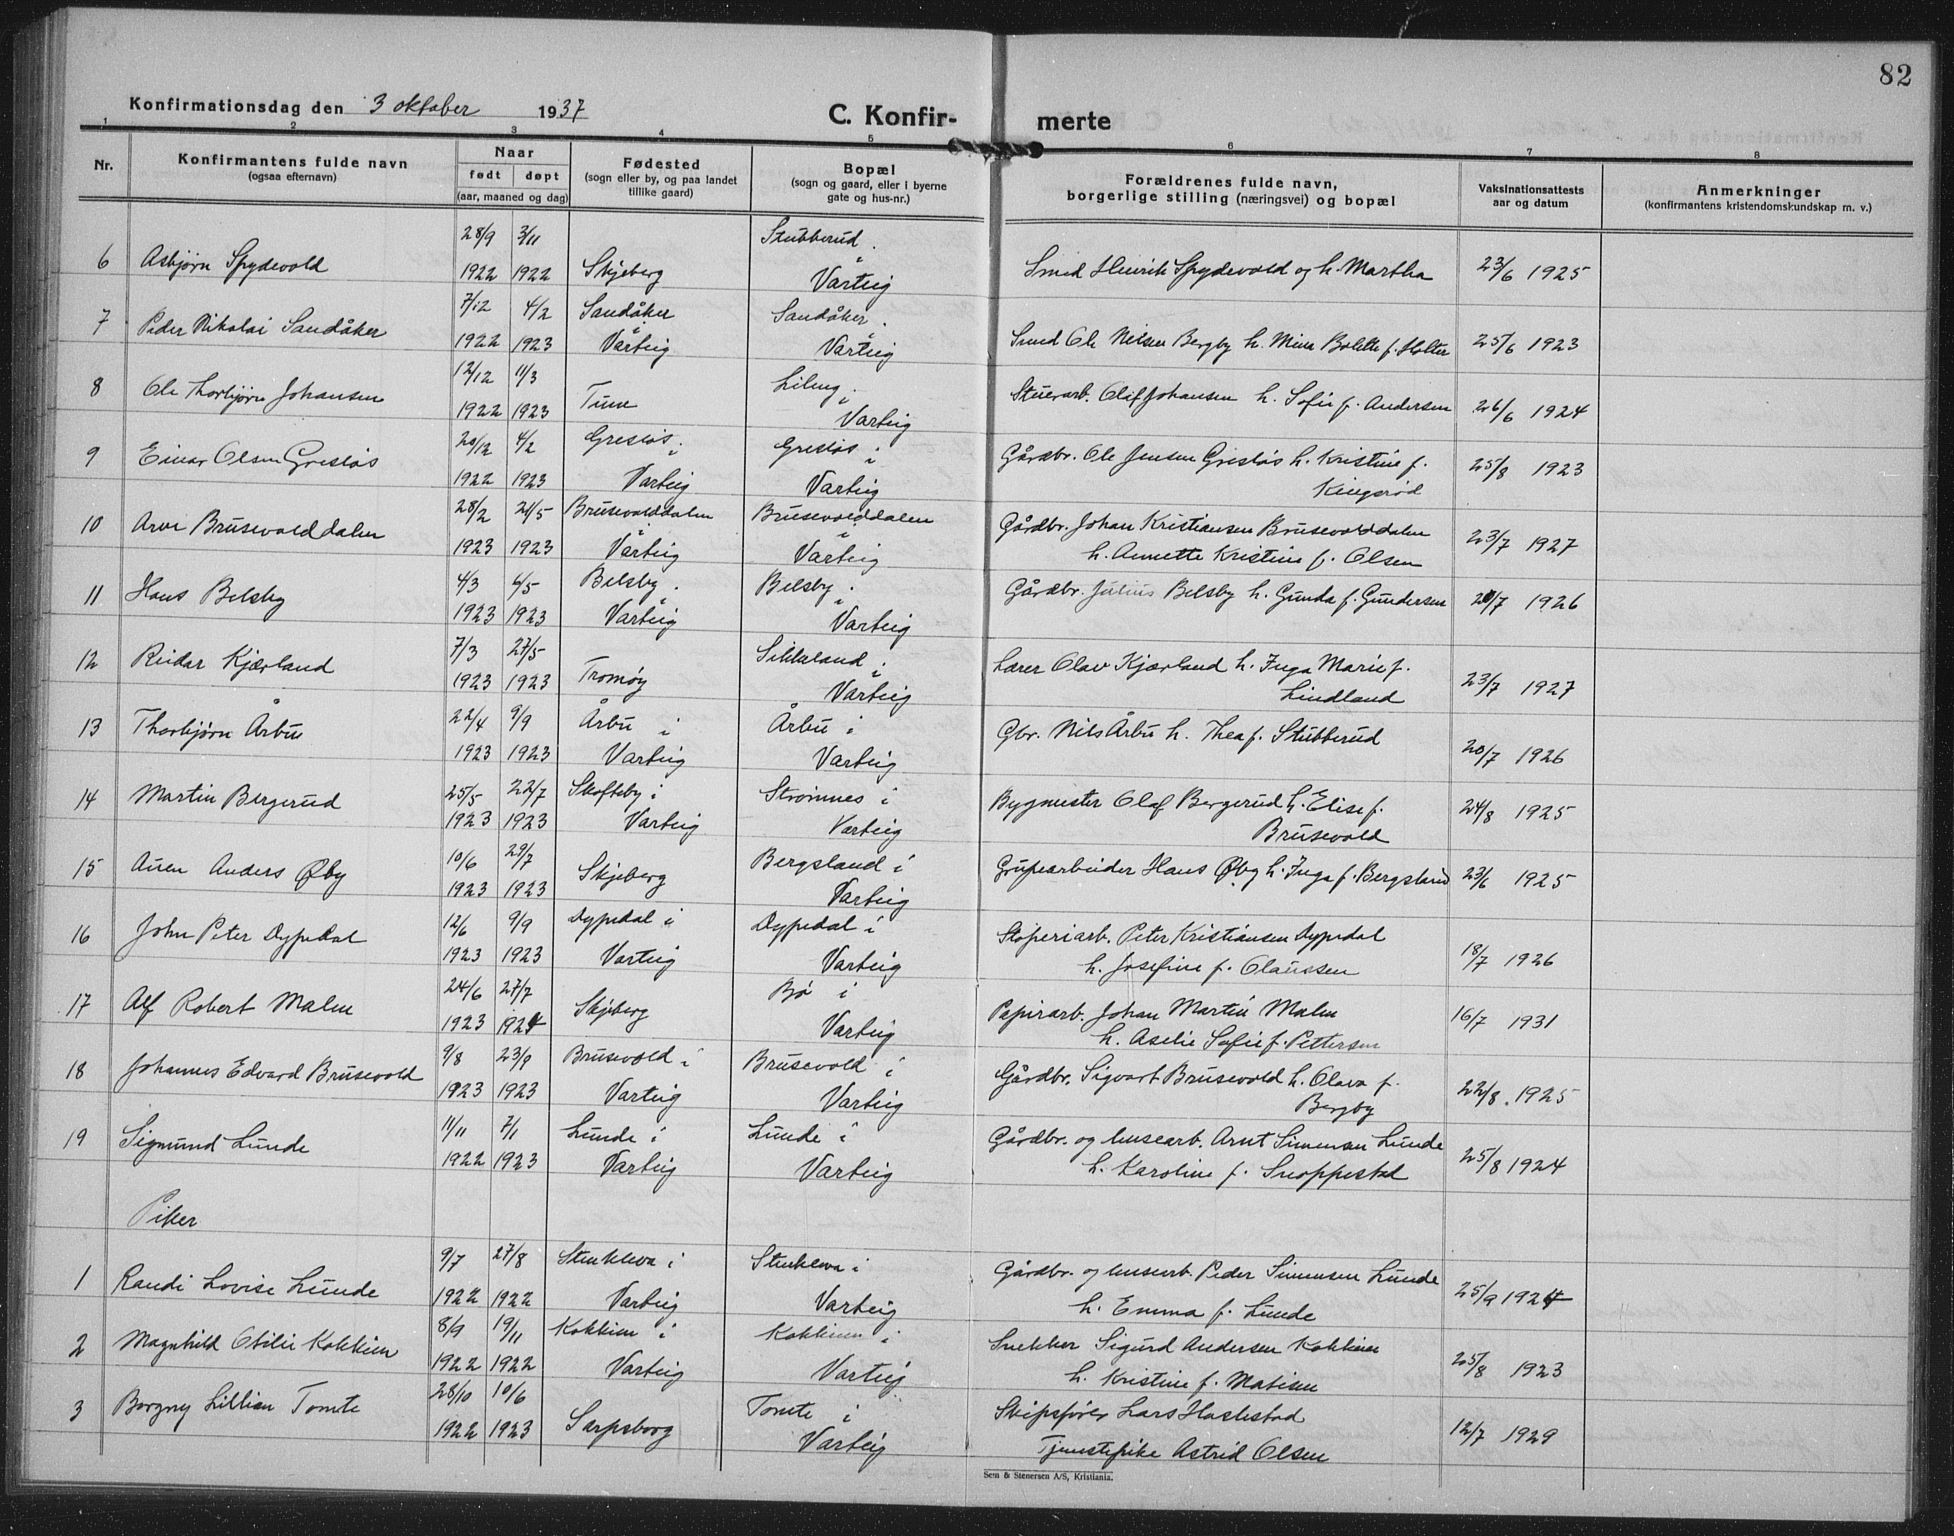 82
Konfirmationsdag den 3 oktober 1937
C. Konfir- merte
1 2 3 4 5 6 7 8
Nr.
Konfirmantens fulde navn
(ogsaa efternavn)
Naar
født døpt
(aar, maaned og dag)
Fødested
(sogn eller by, og paa landet
tillike gaard)
Bopæl
(sogn og gaard, eller i byerne
gate og hus-nr.)
Forældrenes fulde navn,
borgerlige stilling (næringsvei) og bopæl
Vaksinationsattests
aar og datum
Anmerkninger
(konfirmantens kristendomskundskap m. v.)
28/9 3/11 Stubberud i
6 Asbjørn Spydevold 1922 1922 Skjeberg Varteig Smed Henrik Spydevold og h. Martha 23/6 1925
7/12 4/2 Sandåker i Sandåker i
7 Peder Nikolai Sandåker 1922 1923 Varteig Varteig Smed Ole Nilsen Bergby h. Mina Bolette f. Holter 25/6 1923
12/12 11/3 Liberg i
8 Ole Thorbjørn Johansen 1922 1923 Tune Varteig Stuerarb. Olif Johansen h. Sofie f. Andersen 26/6 1924
20/12 4/2 Gresløs i Gresløs i Gårdbr. Ole Jensen Gresløs h. Kristine f.
9 Einar Olsen Gresløs 1922 1923 Varteig Varteig Kingsrød 25/8 1923
28/2 21/5 Brusevolddalen i Brusevolddalen i Gårdbr. Johan Kristiansen Brusevolddalen
10 Arve Brusevolddalen 1923 1923 Varteig Varteig h. Annette Kristine f. Olsen 23/7 1927
4/3 6/5 Belsby i Belsby i
11 Hans Belsby 1923 1923 Varteig Varteig Gårdbr. Julius Belsby h. Gunda f. Gundersen 20/7 1926
7/3 27/5 Sikkeland i Lærer Olav Kjærland h. Inga Marie f.
12 Reidar Kjærland 1923 1923 Tromøy Varteig Lindland 23/7 1927
22/4 9/9 Årbu i Årbu i
13 Thorbjørn Årbu 1923 1923 Varteig Varteig Gbr. Nils Årbu h. Thea f. Stubberud 20/7 1926
25/5 22/7 Skofteby i Strømnes i Bygmester Olaf Bergerud h. Elise f.
14 Martin Bergerud 1923 1923 Varteig Varteig Brusevold 24/8 1925
10/6 29/7 Bergsland i
15 Auen Anders Øby 1923 1923 Skjeberg Varteig Grubearbeider Hans Øby h. Inga f. Bergsland 23/6 1925
12/6 9/9 Dypedal i Dypedal i Stoperiarb. Peter Kristiansen Dypedal
16 John Peter Dypedal 1923 1923 Varteig Varteig h. Josefine f. Claussen 18/7 1926
24/6 27/7 Bø i Papirarb. Johan Martin Malm
17 Alf Robert Malm 1923 1924 Skjeberg Varteig h. Aselie Sofie f. Pettersen 16/7 1931
9/8 23/9 Brusevold i Brusevold i Gårdbr. Sigvart Brusevold h. Olava f.
18 Johannes Edvard Brusevold 1923 1923 Varteig Varteig Bergby 22/8 1925
11/11 7/1 Lunde i Lunde i Gårdbr. og husearb. Arnt Simensen Lunde
19 Sigmund Lunde 1922 1923 Varteig Varteig h. Karoline f. Snoppestad 25/8 1924
Piker
9/7 27/8 Stenkleva i Stenkleva i Gårdbr. og husearb. Peder Simensen Lunde
1 Randi Lovise Lunde 1922 1922 Varteig Varteig h. Emma f. Lunde 25/9 1924
8/9 19/11 Kokkim i Kokkim i Snekker Sigurd Andersen Kokkim
2 Magnhild Otilie Kokkim 1922 1922 Varteig Varteig h. Kristine f. Matisen 25/8 1923
28/10 10/6 Tomte i Skipsfører Lars Haslestad
3 Borgny Lillian Tomte 1922 1923 Sarpsborg Varteig Tjenestepike Astrid Olsen 12/7 1929
Sem & Stenersen A/S, Kristiania.